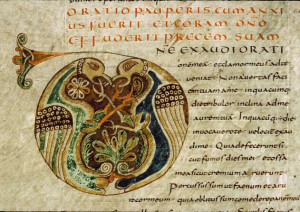 ORATIO PAUPERIS CUM ANXI
US FUERIT ET CORAM DNO
EFFUDERIT PRECEM SUAM
NE EXAUDI ORATI
onem mea & clamor meus ad te
veniat Non avertas faci
em tuam a me In quacumq
die tribulor inclina ad me
aurem tuam In quacuq di
e invocavero te velociter exau
di me Quia defecerunt si
cut fumus dies mei & ossa
mea sicut cremium aruerunt
Percussus sum ut faenum et aru
it cor meum quia oblitus sum comedere panem